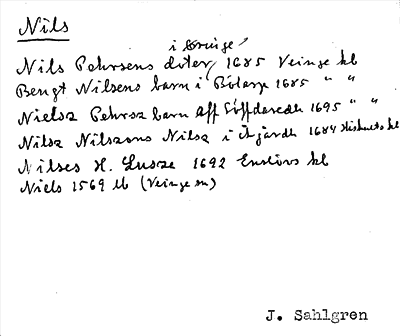 Nils
i Bringe
Nils Pehrsens doter, 1685 Veinge kb
Bengt Nilsens barn i Bölarp 1685 " "
Nielsz Pehrsz barn aff Göstaredh 1695 " "
Nilsz Nilssons Nilsz i 1684 kb
Nilses H. Lusse 1692 Enslövs kb
Niels 1569 lb (Veinge sn)
J. Sahlgren